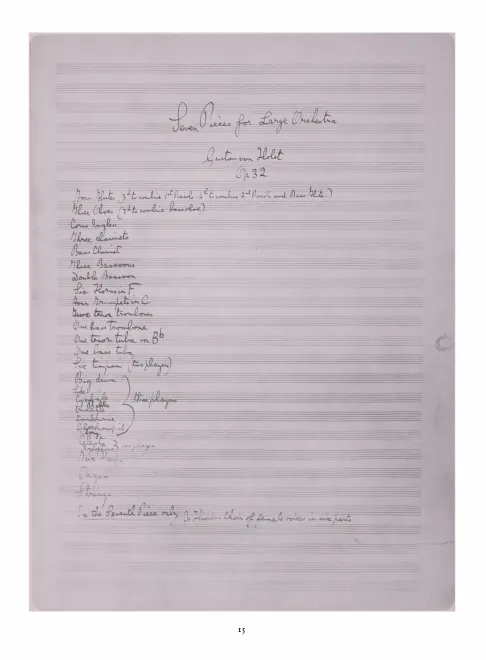 Seven Pieces for Large Orchestra
Gustav von Holst
Op 32
Four Flutes (3rd to combine 1st Piccolo 4th to combine 2nd Piccolo and Bass Flute.)
Three Oboes (3rd to combine bassoboe)
Corno Inglese
Three Clarinets
Bass Clarinet
Three Bassoons
Double Bassoon
Six Horns in F
Four Trumpets in C
Two tenor trombones
One bass trombone
One tenor tuba in Bb
One bass tuba
Six timpani (two players)
Big drum
Side
Cymbals three players
Bells
Tambourine
Glockenspiel
Gong
Celesta
Xylophone one player
Two Harps
Organ
Strings
In the Seventh Piece only A Hidden Choir of female voices in six parts
15